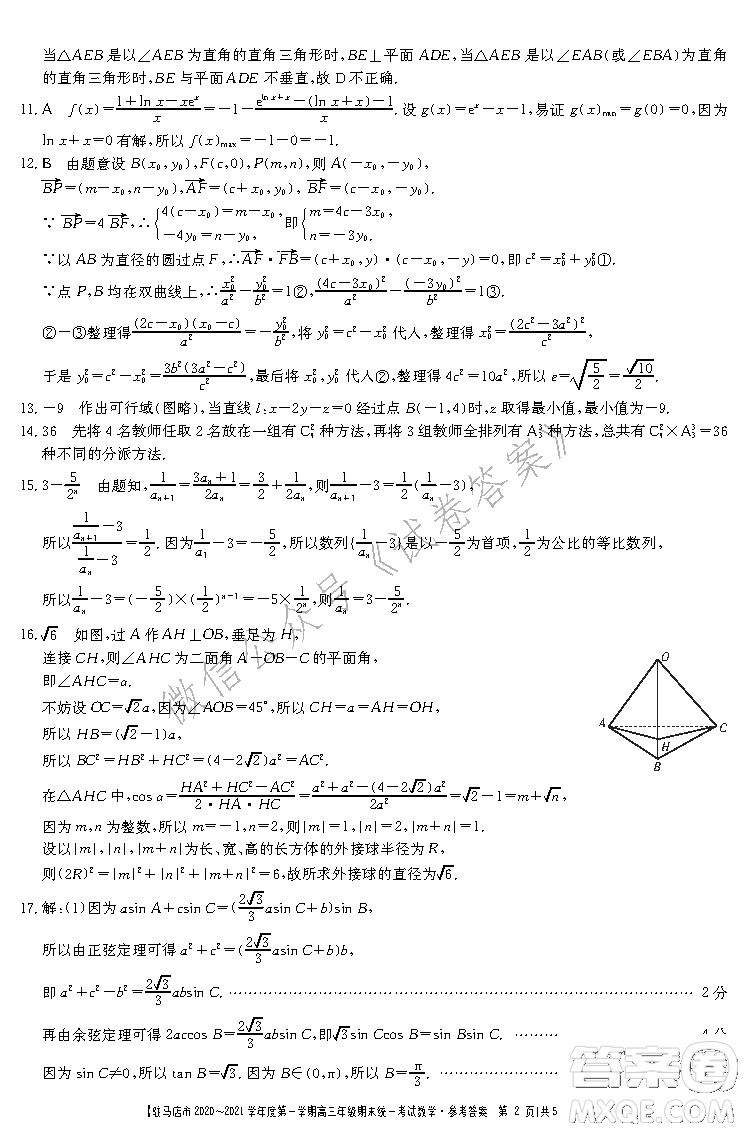 当△AEB是以∠AEB为直角的直角三角形时,BE⊥平面ADE,当△AEB是以∠EAB(或∠EBA)为直角
的直角三角形时,BE与平面ADE不垂直,故D不正确.
11. A f(x)=(1+ln x-xeˣ)/x=-1-(e^(ln x+x)-(ln x+x)-1)/x.设g(x)=eˣ-x-1,易证g(x)min=g(0)=0,因为
ln x+x=0有解,所以f(x)max=-1-0=-1.
12. B 由题意设B(x₀,y₀),F(c,0),P(m,n),则A(-x₀,-y₀),
BP→=(m-x₀,n-y₀),AF→=(c+x₀,y₀),BF→=(c-x₀,-y₀).
∵BP→=4BF→,∴{4(c-x₀)=m-x₀, -4y₀=n-y₀, 即{m=4c-3x₀, n=-3y₀.
∵以AB为直径的圆过点F,∴AF→·FB→=(c+x₀,y)·(c-x₀,-y)=0,即c²=x₀²+y₀²①.
∵点P,B均在双曲线上,∴x₀²/a²-y₀²/b²=1②,(4c-3x₀)²/a²-(-3y₀)²/b²=1③.
②-③整理得(2c-x₀)(x₀-c)/a²=-y₀²/b²,将y₀²=c²-x₀²代人,整理得x₀²=(2c²-3a²)²/c²,
于是y₀²=c²-x₀²=3b²(3a²-c²)/c²,最后将x₀²,y₀²代人②,整理得4c²=10a²,所以e=√(5/2)=√10/2.
13. -9 作出可行域(图略),当直线l:x-2y-z=0经过点B(-1,4)时,z取得最小值,最小值为-9.
14. 36 先将4名教师任取2名放在一组有C₄²种方法,再将3组教师全排列有A₃³种方法,总共有C₄²×A₃³=36
种不同的分派方法.
15. 3-5/2ⁿ 由题知,1/aₙ₊₁=(3aₙ+1)/2aₙ=3/2+1/2aₙ,则1/aₙ₊₁-3=1/2(1/aₙ-3),
所以(1/aₙ₊₁-3)/(1/aₙ-3)=1/2.因为1/a₁-3=-5/2,所以数列{1/aₙ-3}是以-5/2为首项,1/2为公比的等比数列,
所以1/aₙ-3=(-5/2)×(1/2)ⁿ⁻¹=-5×1/2ⁿ,则1/aₙ=3-5/2ⁿ.
16. √6 如图,过A作AH⊥OB,垂足为H,
连接CH,则∠AHC为二面角A-OB-C的平面角,
即∠AHC=α.
不妨设OC=√2a,因为∠AOB=45°,所以CH=a=AH=OH,
所以HB=(√2-1)a,
所以BC²=HB²+HC²=(4-2√2)a²=AC².
在△AHC中,cos α=(HA²+HC²-AC²)/(2·HA·HC)=(a²+a²-(4-2√2)a²)/2a²=√2-1=m+√n,
因为m,n为整数,所以m=-1,n=2,则|m|=1,|n|=2,|m+n|=1.
设以|m|,|n|,|m+n|为长、宽、高的长方体的外接球半径为R,
则(2R)²=|m|²+|n|²+|m+n|²=6,故所求外接球的直径为√6.
O
A
C
H
B
17. 解:(1)因为asin A+csin C=(2√3/3 asin C+b)sin B,
所以由正弦定理可得a²+c²=(2√3/3 asin C+b)b,
即a²+c²-b²=2√3/3 absin C. …… 2分
再由余弦定理可得2accos B=2√3/3 absin C,即√3sin Ccos B=sin Bsin C. ……… 4分
因为sin C≠0,所以tan B=√3.因为B∈(0,π),所以B=π/3. ………
【驻马店市2020~2021学年度第一学期高三年级期末统一考试数学·参考答案 第2页(共5
微信公众号《试卷答案》
答案圈